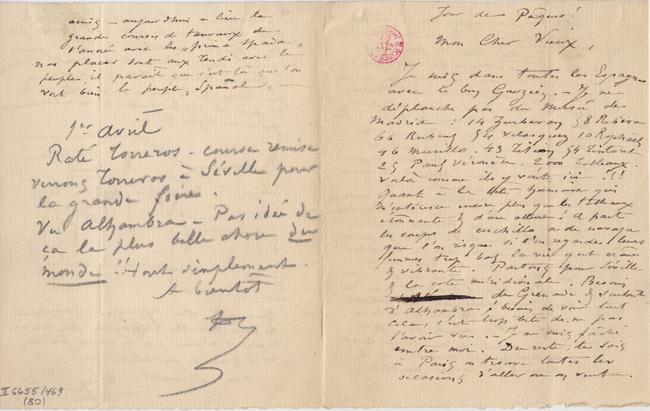 Jour de Pâques !
Mon Cher Vieux,
Je suis dans toutes les Espagnes
avec le bon Guozien. - Je ne
déplanche pas du Musée de
Madrid : 14 Zurbaran 58 Ribiera
66 Rubens 64 Velasquez 10 Raphaels
46 Murillo. 43 Titien 34 Tintoret
25 Paul Véronèse 2.000 Tableaux
voilà comme ils y vont ici !!!
Quant à la bête humaine qui
m'intéresse encore plus que les tableaux
étonnante & d'une allure ! A part
les coups de cuchillo ou de navaja
que l'on risque si l'on regarde leurs
femmes trop bas la vie y est crâne
& vibrante. Partons pour Séville
& la côte méridionale. Besoin
de Grenade &
d'Alhambra ; besoin de voir tout
cela, c'est trop bête de ne pas
l'avoir vu. - Je me suis fâché
entre moi. Du reste : du
à Paris on trouve toutes les
occasions d'aller où on veut.
amis - aujourd'hui a lieu la
grande course de taureaux de
l'année avec les "prima Spada",
nos places sont aux Tendi avec le
peuple, il paraît que c'est là que l'on
voit bien le peuple Español.
1er avril
Raté Torreros - course remise
verrons Torreros à Séville pour
la grande foire.
Vu Alhambra - Pas idée de
ça la plus belle chose du
monde !! tout simplement.
A bientôt
II 6655/469
(80)